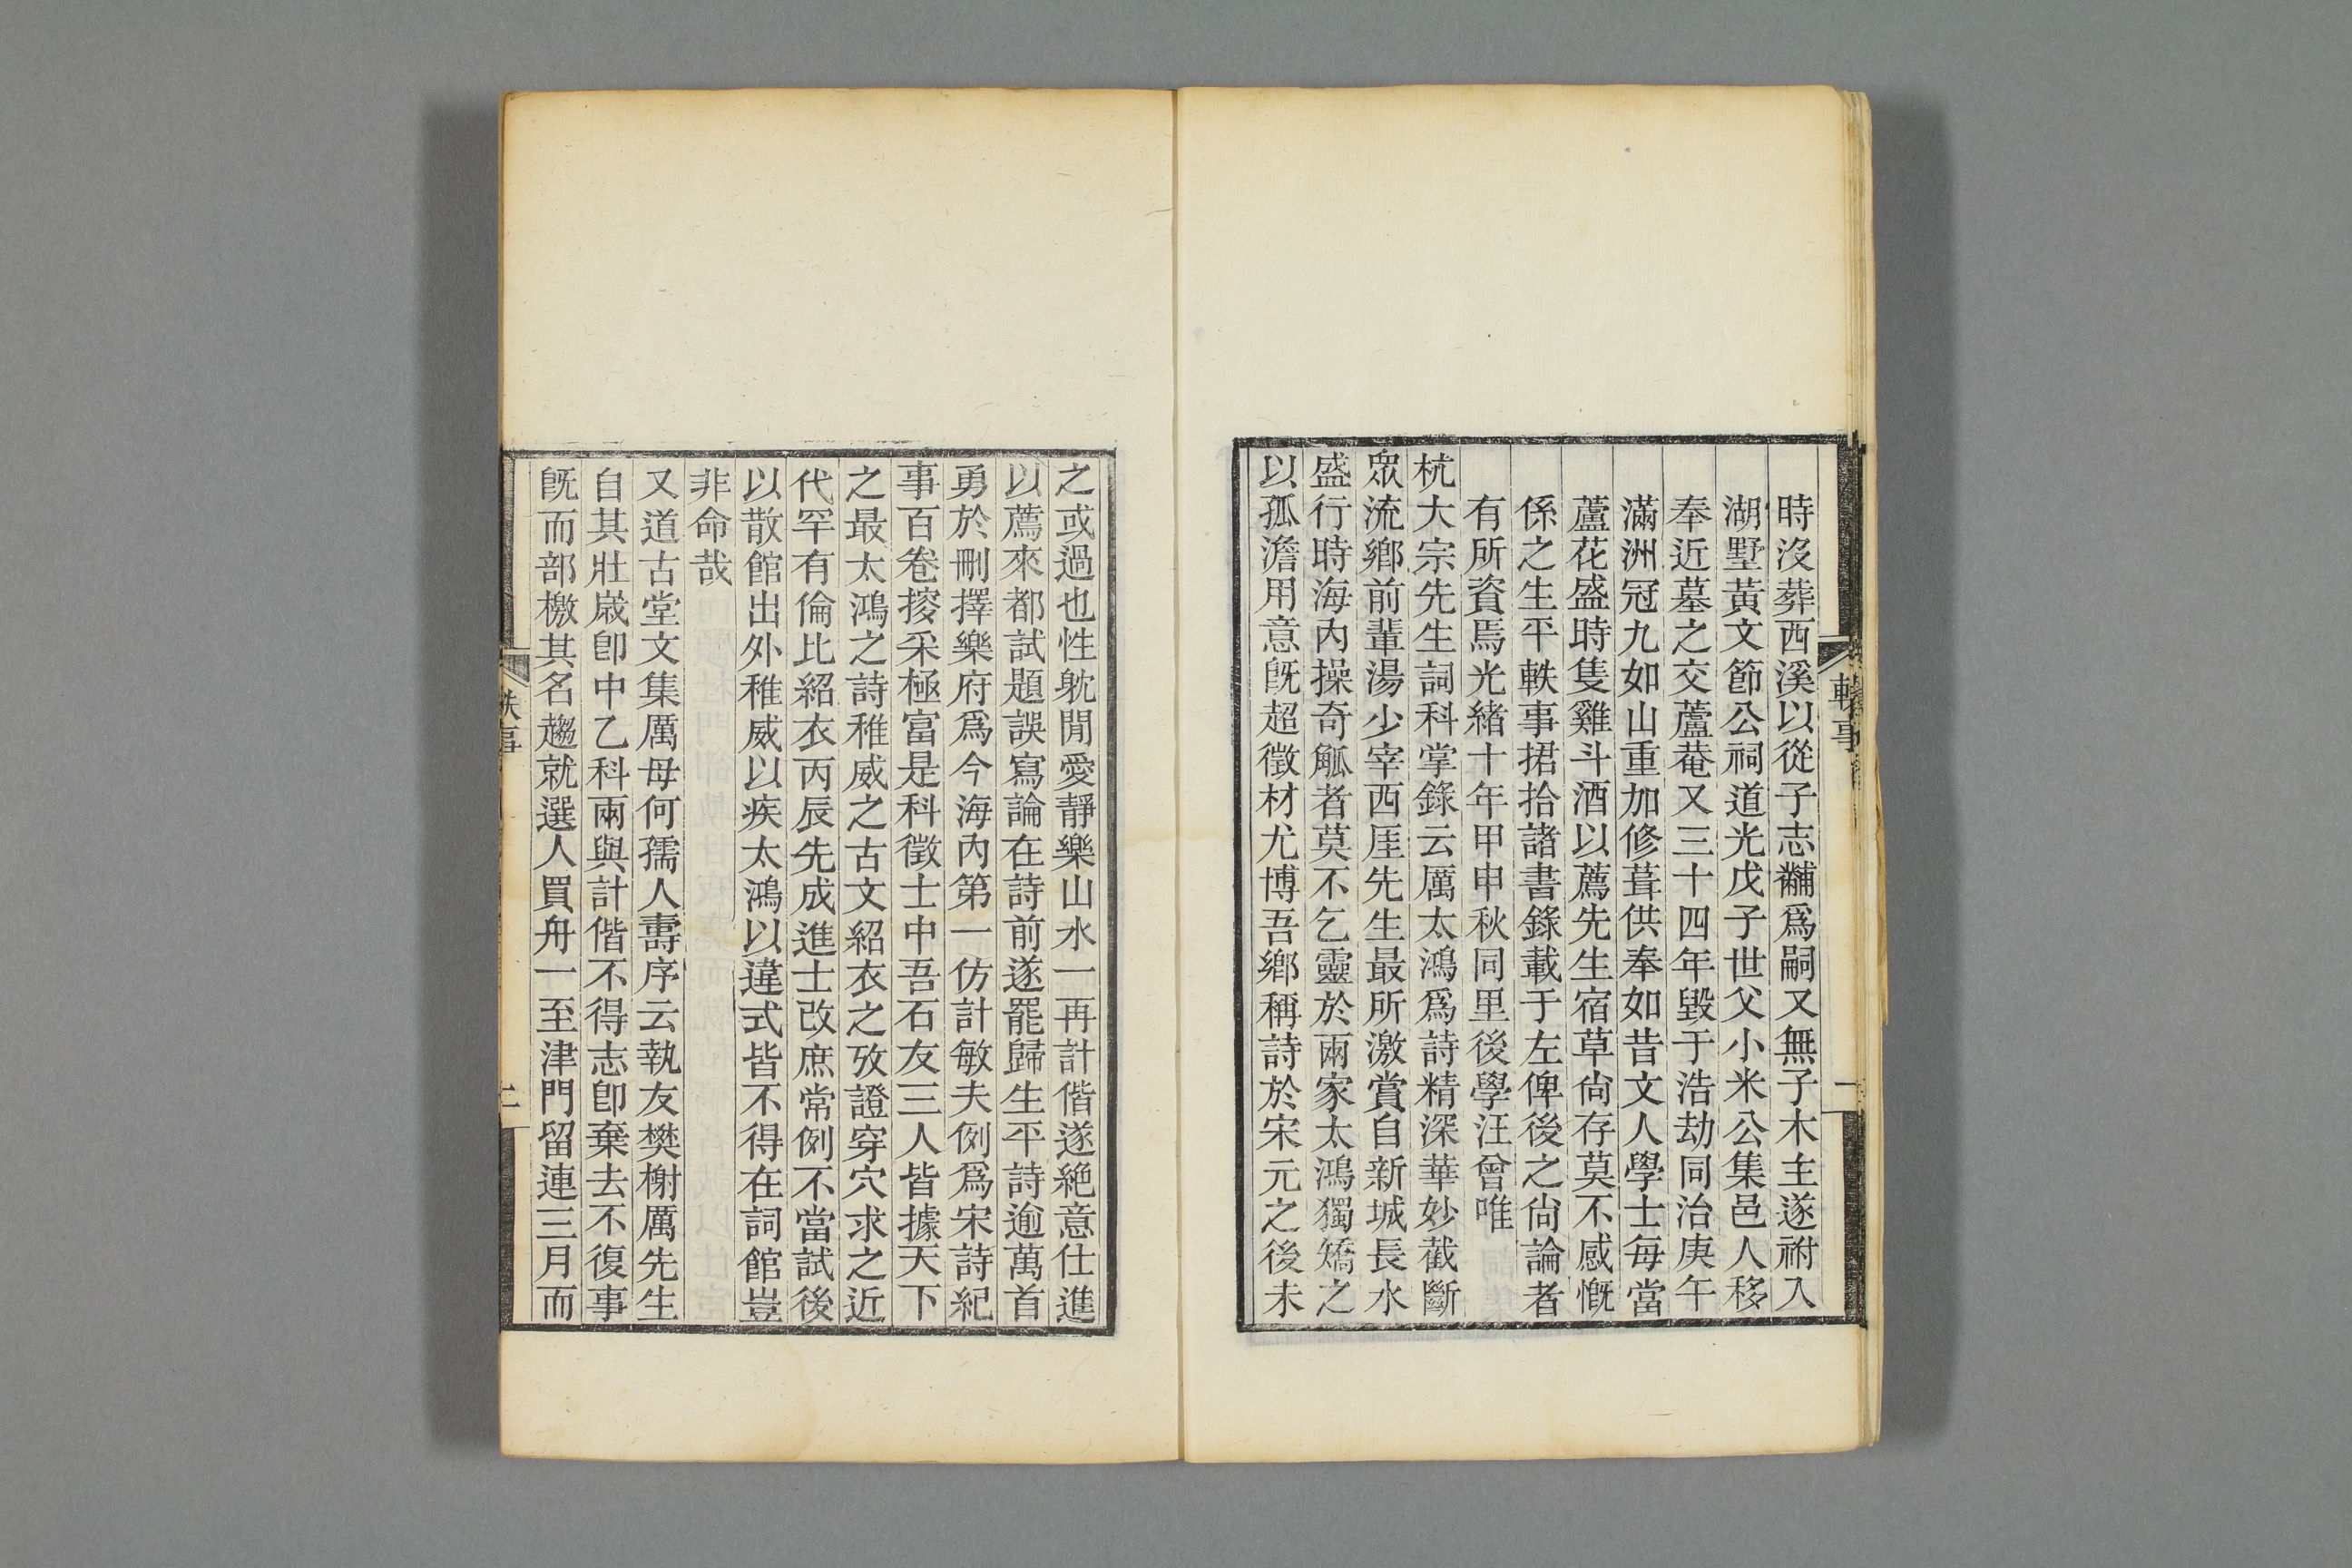 軼事
一
時沒葬西溪以從子志黼爲嗣又無子木主遂祔入
湖墅黃文節公祠道光戊子世父小米公集邑人移
奉近墓之交蘆菴又三十四年毀于浩劫同治庚午
滿洲冠九如山重加修葺供奉如昔文人學士每當
蘆花盛時隻雞斗酒以薦先生宿草尙存莫不感慨
係之生平軼事捃拾諸書錄載于左俾後之尙論者
有所資焉光緒十年甲申秋同里後學汪曾唯
杭大宗先生詞科掌錄云厲太鴻爲詩精深華妙截斷
眾流鄉前輩湯少宰西厓先生最所激賞自新城長水
盛行時海內操奇觚者莫不乞靈於兩家太鴻獨矯之
以孤澹用意旣超徵材尤博吾鄉稱詩於宋元之後未
之或過也性躭閒愛靜樂山水一再計偕遂絕意仕進
以薦來都試題誤寫論在詩前遂罷歸生平詩逾萬首
勇於刪擇樂府爲今海內第一仿計敏夫例爲宋詩紀
事百卷搜采極富是科徵士中吾石友三人皆據天下
之最太鴻之詩稚威之古文紹衣之攷證穿穴求之近
代罕有倫比紹衣丙辰先成進士改庶常例不當試後
以散館出外稚威以疾太鴻以違式皆不得在詞館豈
非命哉
又道古堂文集厲母何孺人壽序云執友樊榭厲先生
自其壯歲卽中乙科兩與計偕不得志卽棄去不復事
旣而部檄其名趨就選人買舟一至津門留連三月而
軼事
二